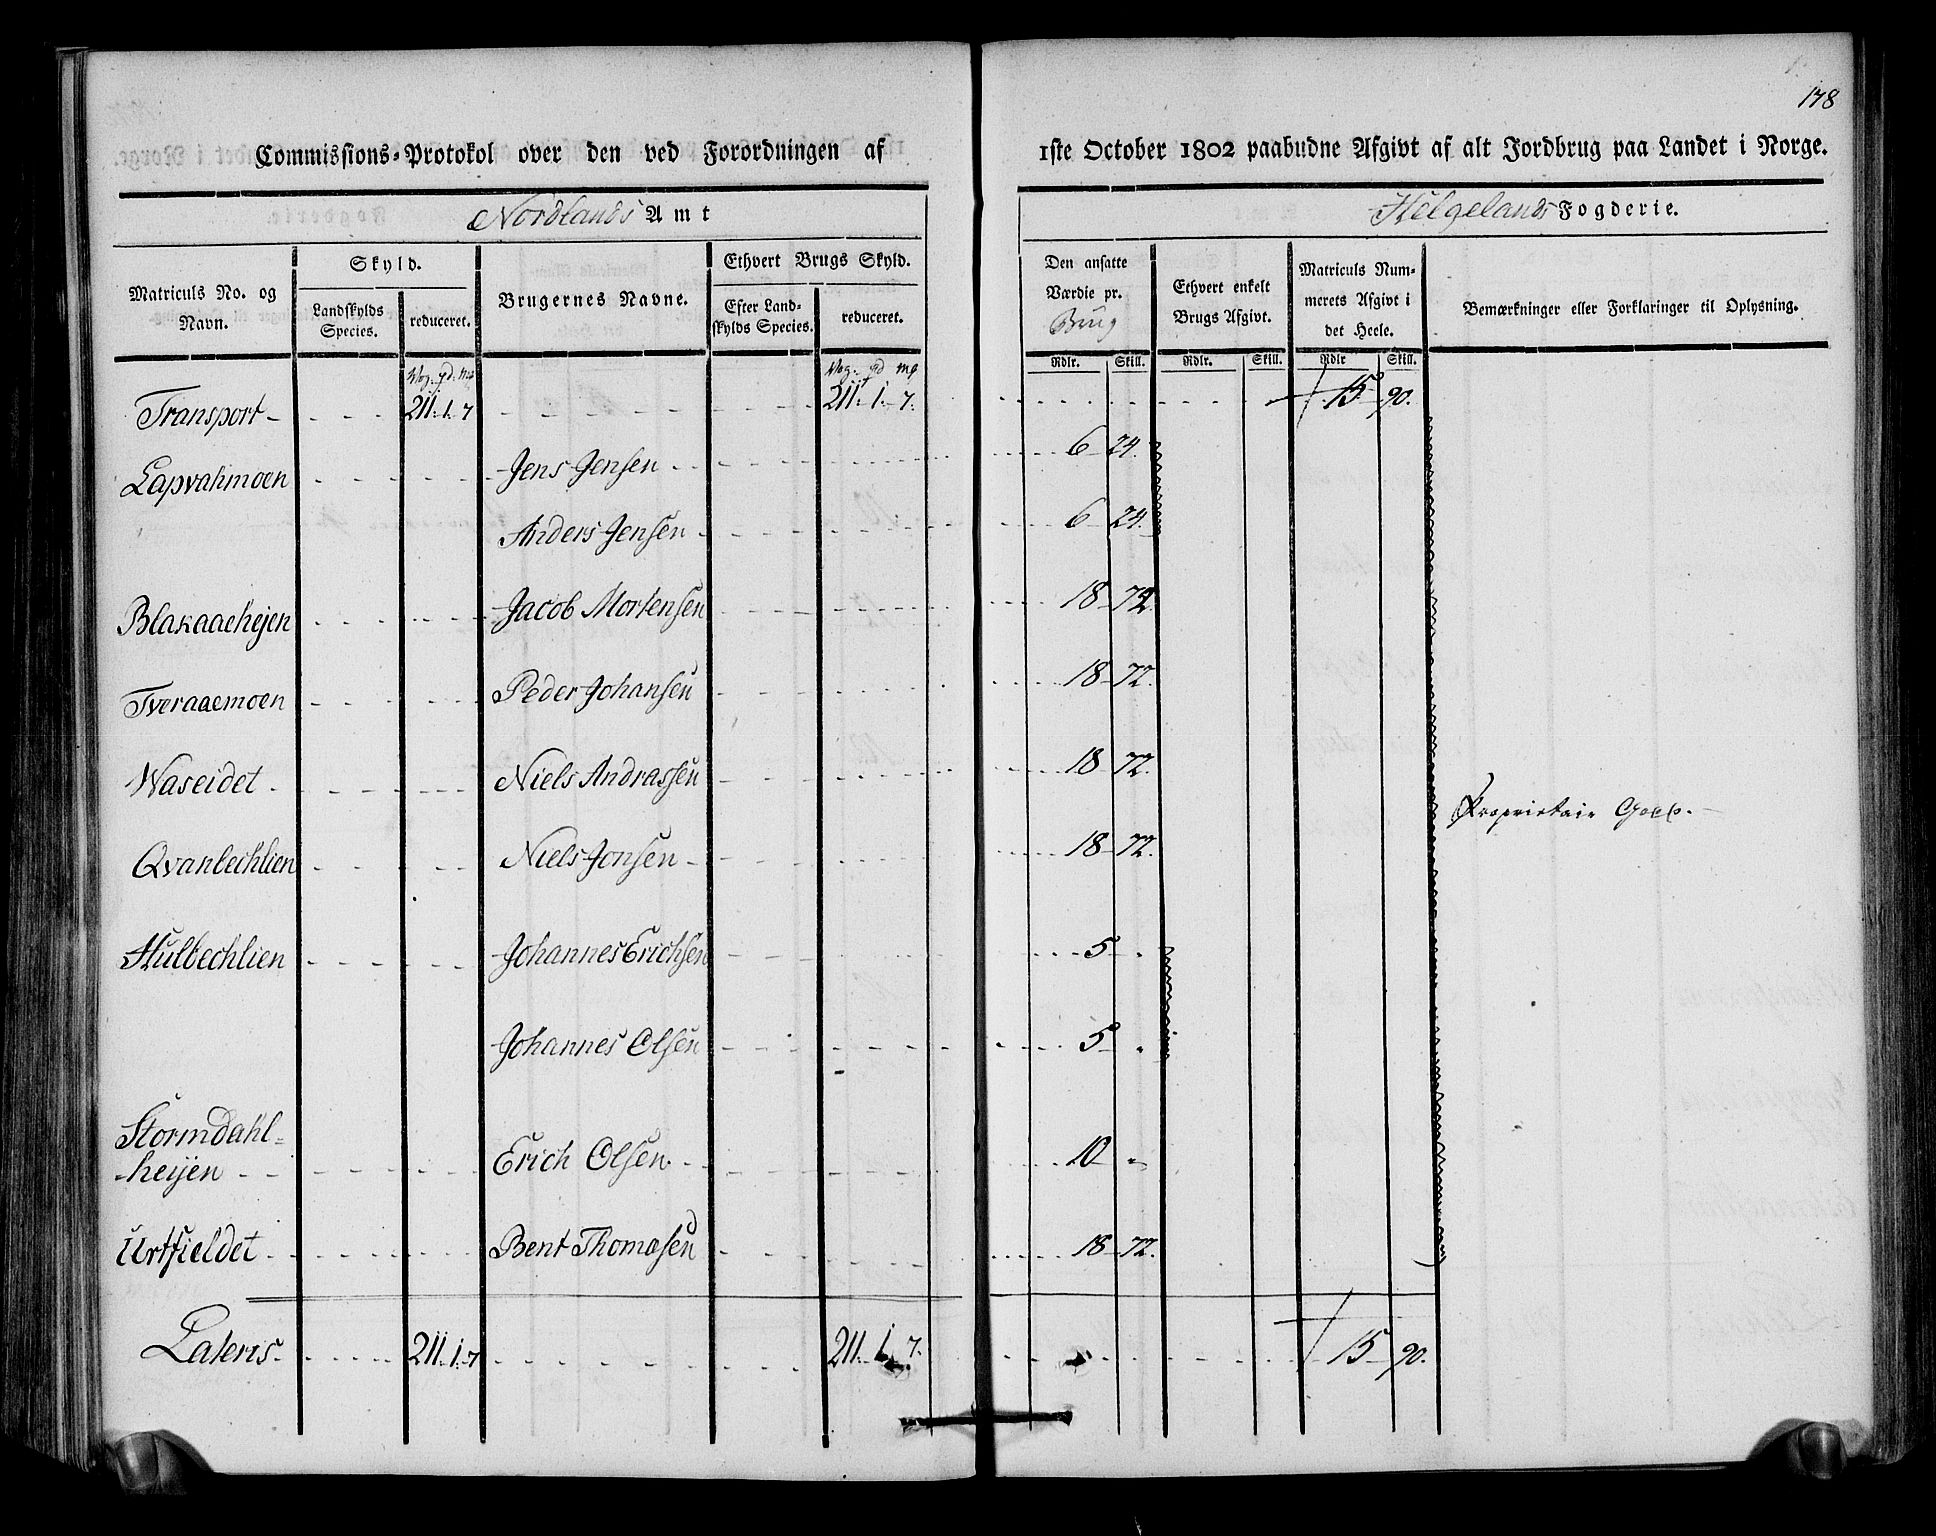 178
Commissions-Protokol over den ved Forordningen af 1ste October 1802 paabudne Afgivt af alt Jordbrug paa Landet i Norge.
Nordlands Amt Helgelands Fogderie.
Matriculs No. og Navn. Skyld. Landskylds Species. reduceret. Brugernes Navne. Ethvert Brugs Skyld. Efter Landskylds Species. reduceret. Den ansatte Værdie pr. Brug Ethvert enkelt Brugs Afgivt. Matriculs Nummerets Afgivt i det Heele. Bemærkninger eller Forklaringer til Oplysning.
Rdlr. Skill. Rdlr. Skill. Rdlr Skill.
Wog. pd. mg Wog. pd mg
Transport 211. 1. 7 211. 1. 7. 15 90.
Lapvahmoen Jens Jensen 6 24.
Anders Jensen 6 24.
Blakaaehejen Jacob Mortensen 18 72.
Tveraaemoen Peder Johansen 18 72.
Waseidet Niels Andrassen 18 72.
Proprietair
Qvanbechlien Niels Jonsen 18 72.
Hulbechlien Johannes Erichsen 5 "
Johannes Olsen 5 "
Stormdahl=
-heijen Erich Olsen 10 "
Urtfieldet Bent Thomasen 18 72.
Lateris 211. 1. 7 211. 1. 7. 15 90.